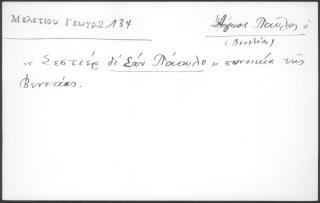 Μελετίου Γεωγρ2.134
Άγιος Παῦλος ὁ
(Βενετίας)
« Σεστιέρ δί Σάν Πάουλο » συνοικία τῆς
Βενετίας.